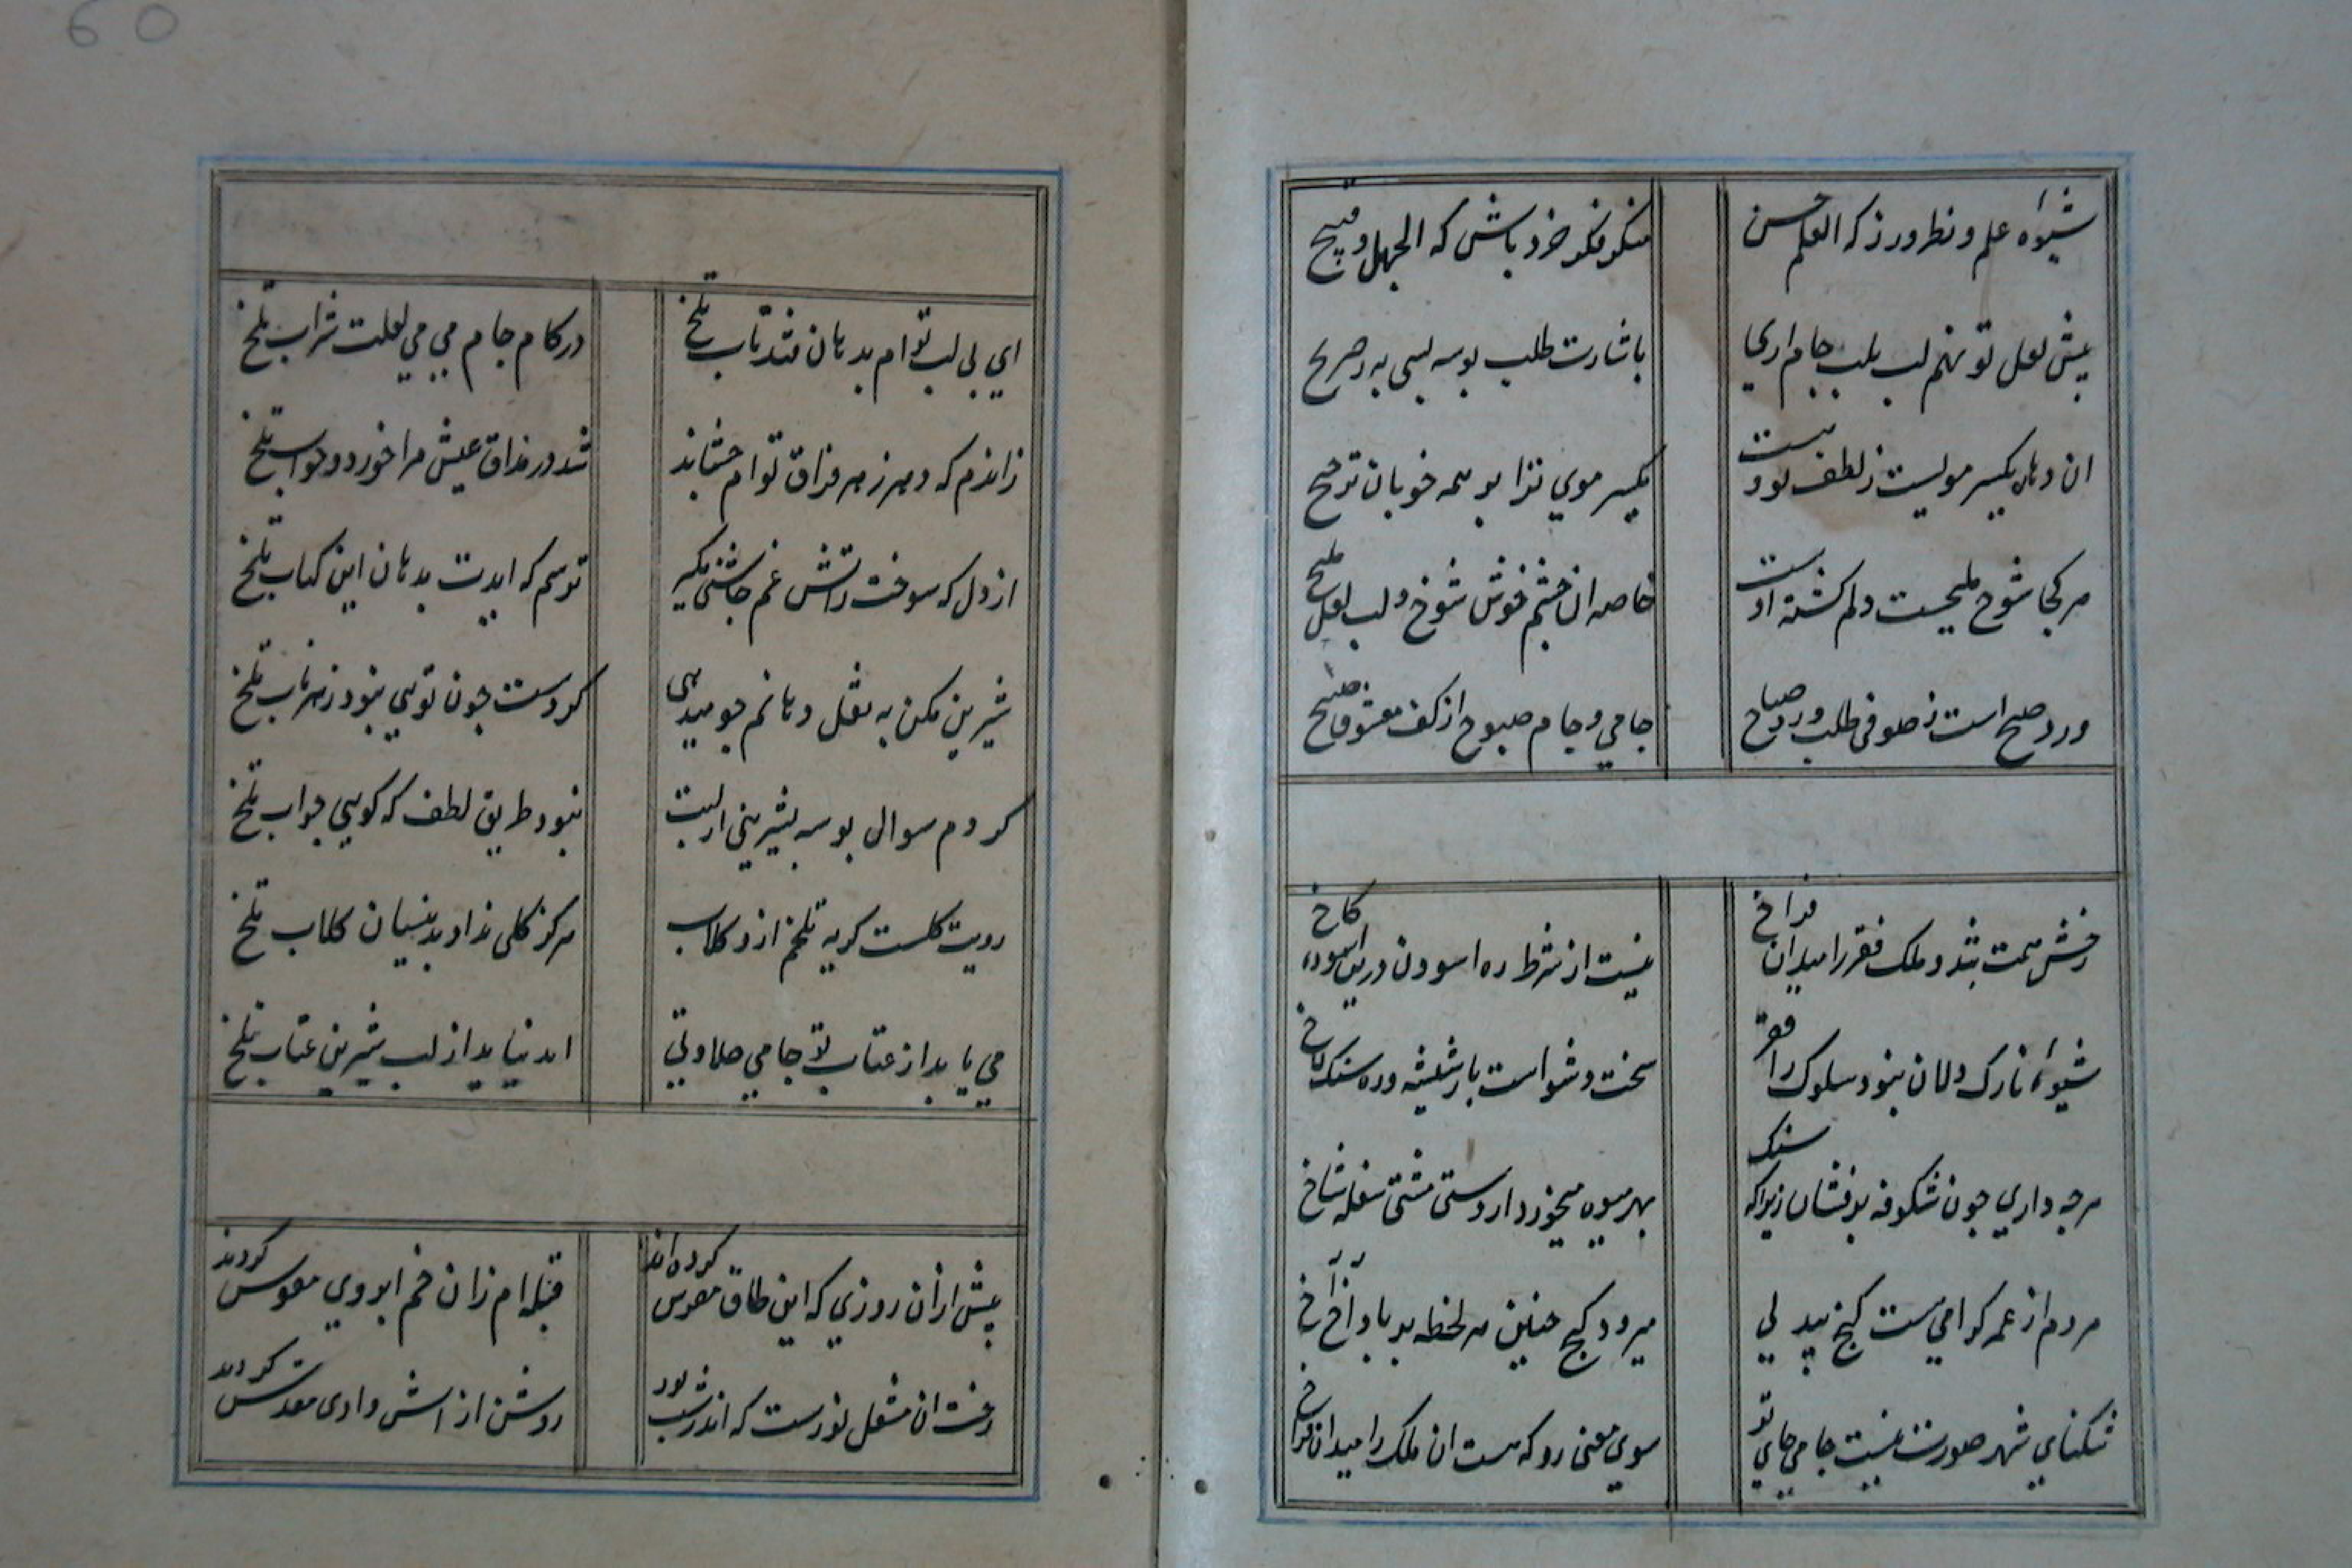 60
شیوه علم و نظر ورز که العلم حسن
منکر فکر خرد باش که الجهل قبیح
پیش لعل تو نهم لب بلب جام اری
باشارت طلب بوسه بسی به ز صریح
ان دهان یکسر مویست ز لطف بودنیست
یکسر موی ترا بر همه خوبان ترجیح
هر کجا شوخ ملیحست دلم کشته اوست
خاصه ان چشم خوش شوخ و لب لعل ملیح
ورد صبح است ز صوفی طلب ورد صباح
جامی و جام صبوح از کف معشوق صبیح
رخش همت شد و ملک فقر را میدان فراخ
نیست از شرط ره اسودن درین اسوده کاخ
شیوه نازک دلان نبود سلوک راه فقر
سخت دشوارست بار شیشه و ره سنک لاخ
هرجه داری جون شکوفه بر فشان زیراکه سنک
بهر میوه میخورد از دست مشتی سفله شاخ
هر دم از عمر کرامی هست کنج بی بدلی
میرود کنج جنین هر لحظه بر باد آخ آخ
تنکنای شهر صورت نیست جامی جای تو
سوی معنی رو که هست ان ملک را میدان فراخ
ای بی لب توام بدهان قند ناب تلخ
در کام جام بی می لعلت شراب تلخ
زاندم که دهر زهر فراق توام جشاند
شد در مذاق عیش مرا خورد و خواب تلخ
از دل که سوخت زاتش غم جاشنی مکیر
ترسم که ایدت بدهان این کباب تلخ
شیرین مکن به نقل دهانم جو میدهی
کز دست جون تویی نبود زهر ناب تلخ
کردم سوال بوسه بشیرینی از لبت
نبود طریق لطف که کویی جواب تلخ
رویت کلست کریه تلخم ازو کلاب
هرکز کلی نداد بدینسان کلاب تلخ
می یابد از عتاب تو جامی حلاوتی
اید نیاید از لب شیرین عتاب تلخ
پیش ازان روزی که این طاق مقوس کرده اند
قبله ام زان خم ابروی مقوس کردند
رخت ان مشعل نورست که اندر شب نور
روشن از اتش وادی مقدس کردند